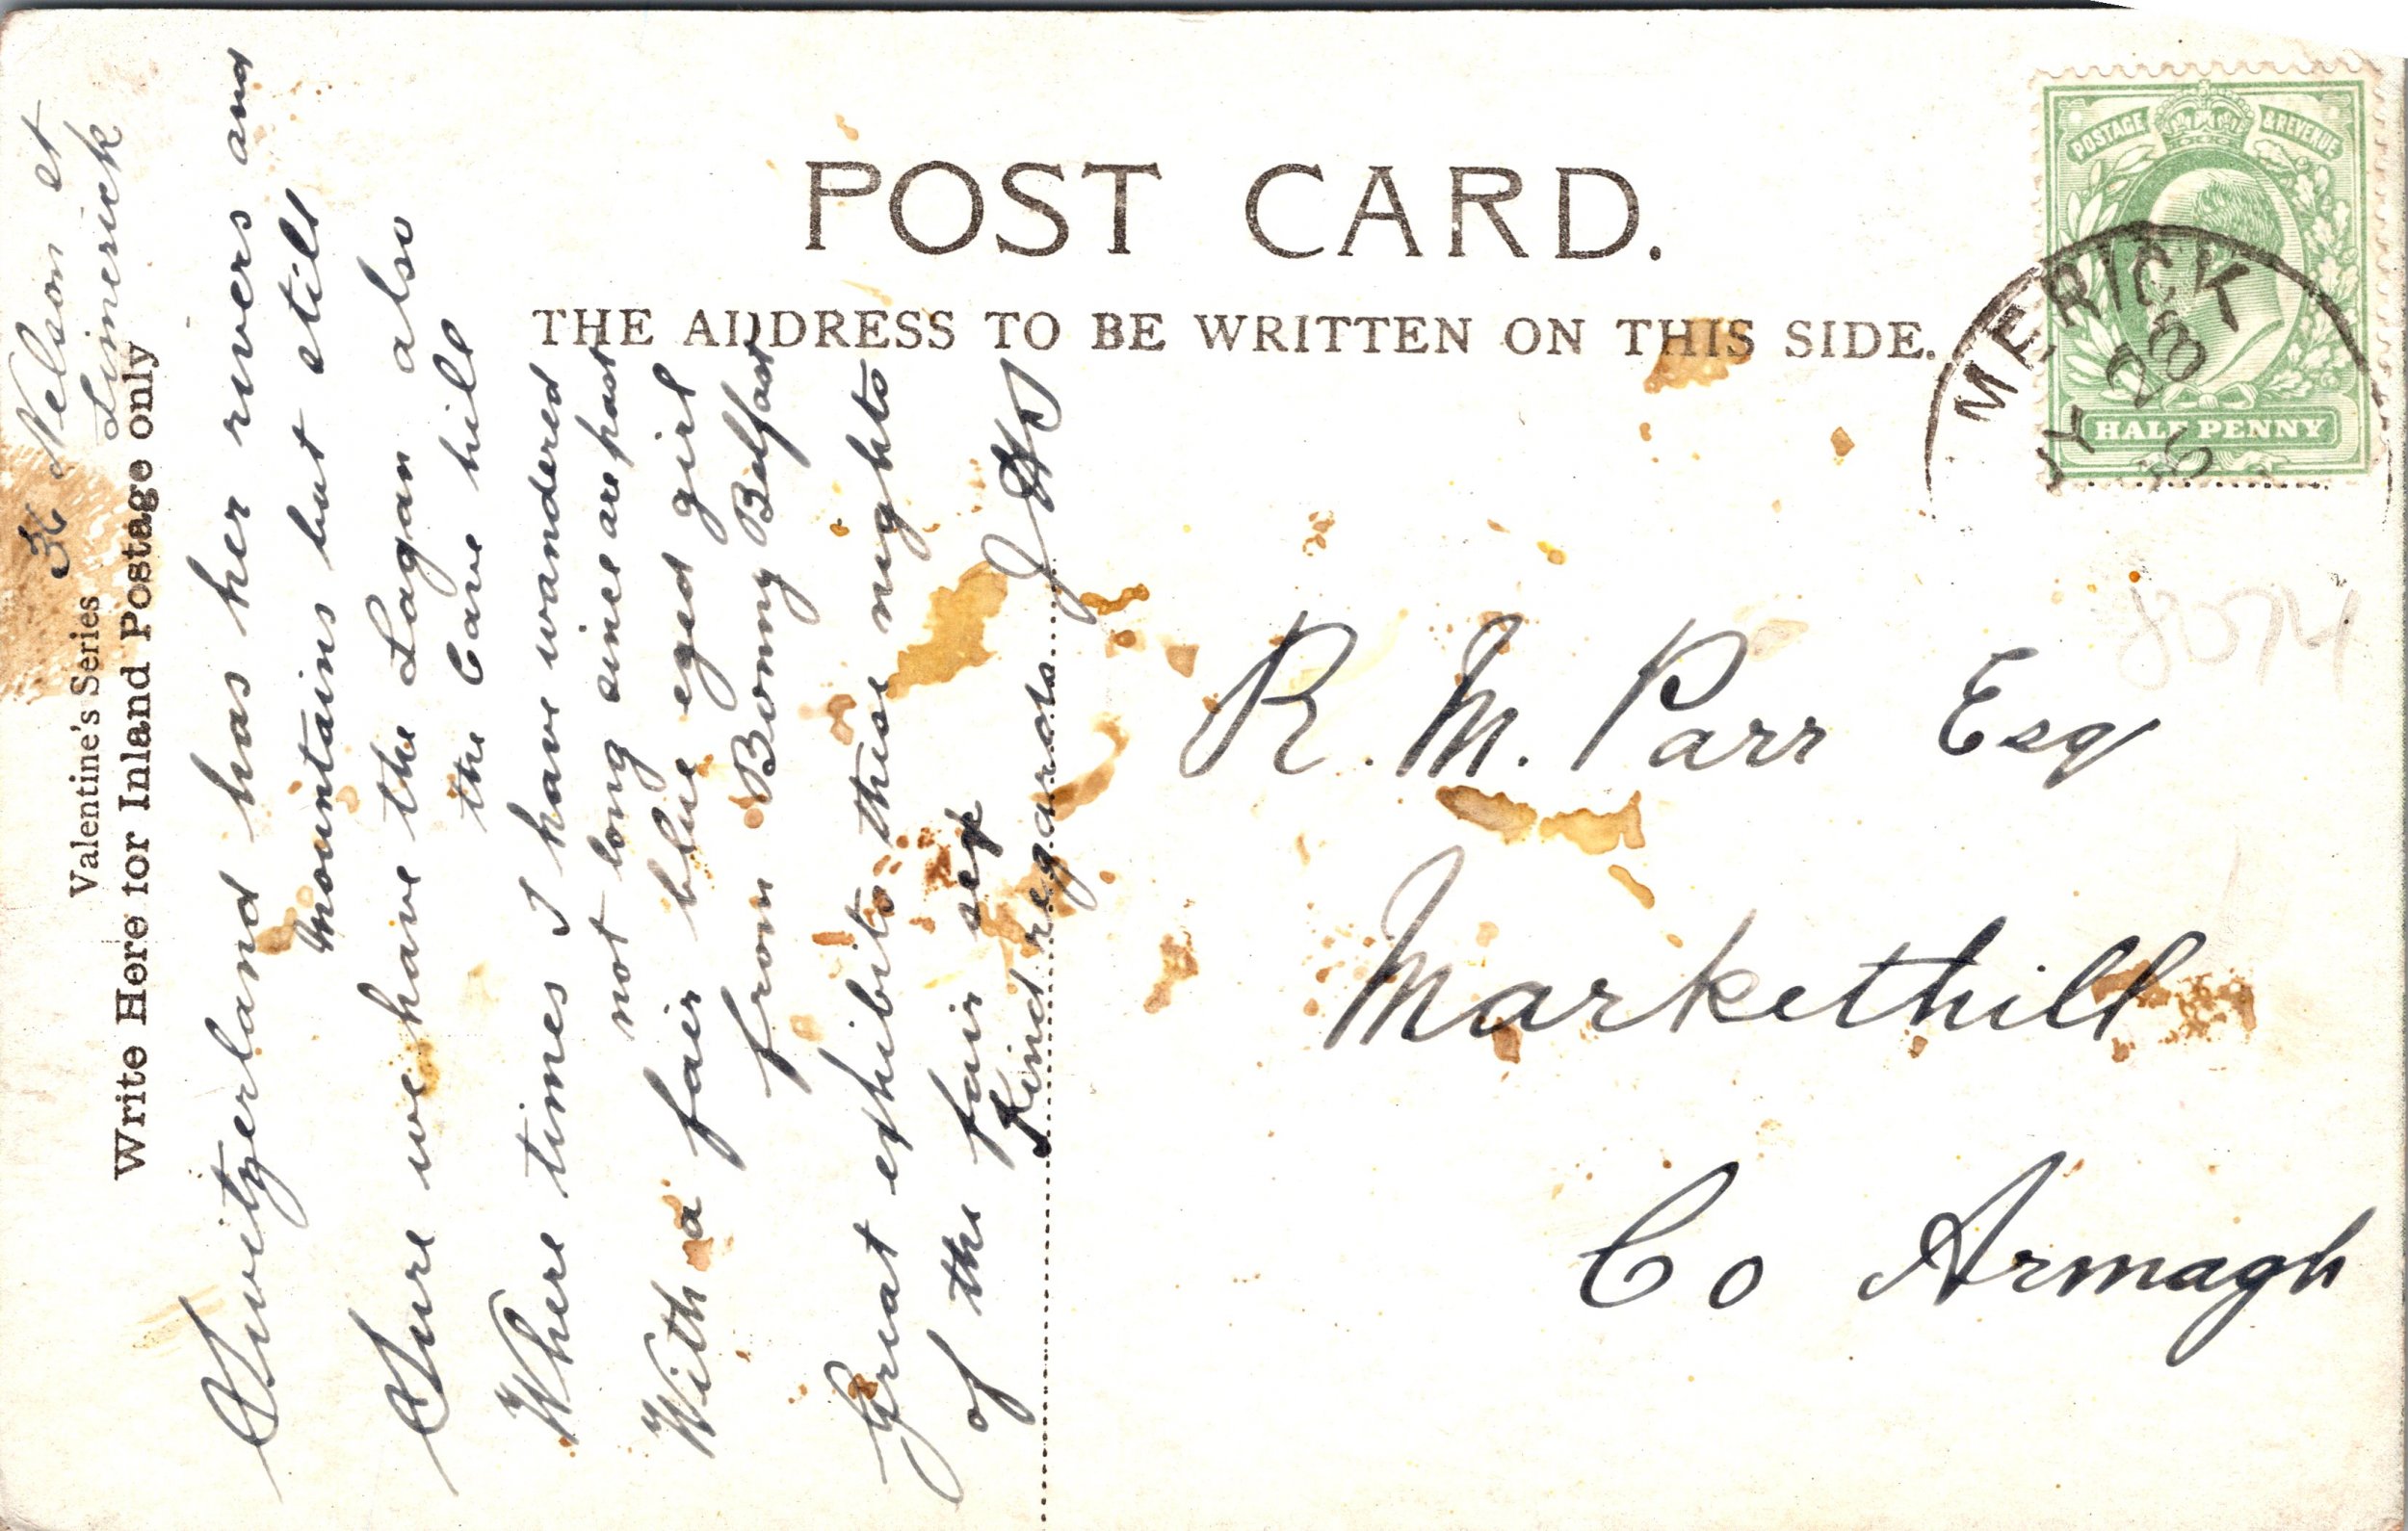 POST CARD.
THE ADDRESS TO BE WRITTEN ON THIS SIDE.
Valentine's Series
Write Here for Inland Postage only
36 Nelson st
Limerick
Switzerland has her rivers and
mountains but still
Sure we have the Lagan also
the Cave hill
Where times I have wandered
not long since are past
With a fair blue eyed girl
from Bonny Belfast
Great exhibits these nights
of the fair sex
Kind regards
R. M. Parr Esq
Markethill
Co Armagh
POSTAGE & REVENUE
HALF PENNY
MERICK
28
8074